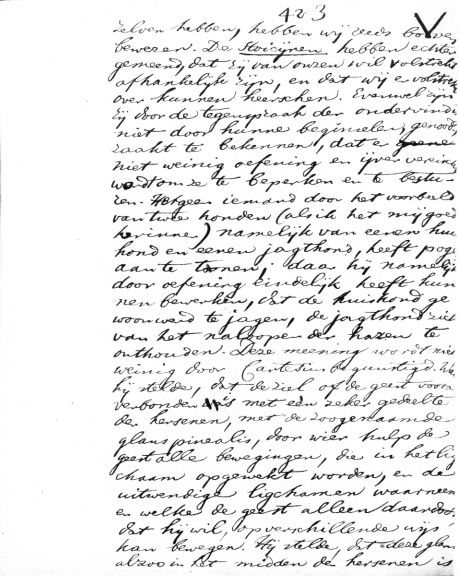 423
zelven hebben, hebben wij reeds boven
bewezen. De Stoicijnen hebben echter
gemeend, dat zij van onzen wil volstrekt
afhankelijk zijn, en dat wij er volstrekt
over kunnen heerschen. Evenwel zijn
zij door de tegenspraak der ondervinding
niet door hunne beginselen, genood-
zaakt te bekennen, dat er
niet weinig oefening en ijver vereischt
wordt om ze te beperken en te bestu-
ren. Hetgeen iemand door het voorbeeld
van twee honden (als ik het mij goed
herinner) namelijk van eenen huis
hond en eenen jagthond, heeft pogen
aan te toonen; daar hij namelijk
door oefening eindelijk heeft kun
nen bewerken, dat de huishond ge
woon werd te jagen, de jagthond zich
van het naloopen der hazen te
onthouden. Deze meening wordt niet
weinig door Cartesius begunstigd. Want
hij stelde, dat de ziel of de geest vooral
verbonden is met een zeker gedeelte
der hersenen, met de zoogenaamde
glans pinealis, door wier hulp de
geest alle bewegingen, die in het lig
chaam opgewekt worden, en de
uitwendige ligchamen waarneemt
en welke de geest alleen daardoor,
dat hij wil, op verschillende wijs
kan bewegen. Hij stelde, dat deze glans
alzoo in het midden der hersenen is